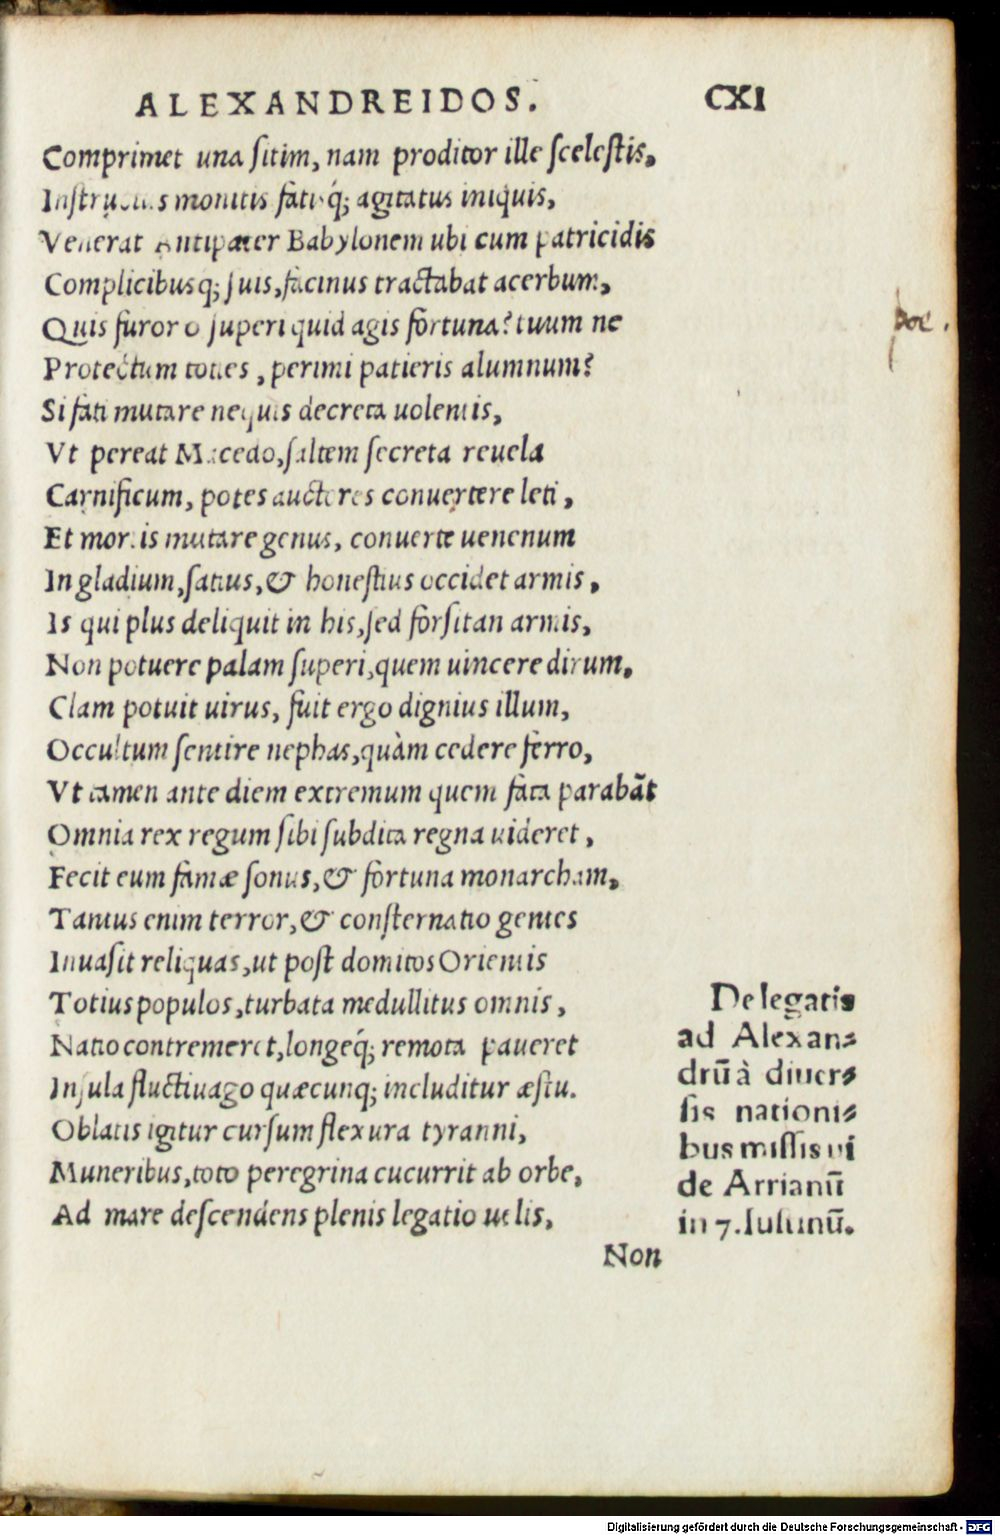 ALEXANDREIDOS. CXI
Comprimet una sitim, nam proditor ille scelestis,
Instructus monitis fatisq́; agitatus iniquis,
Venerat Antipater Babylonem ubi cum patricidis
Complicibusq; suis, facinus tractabat acerbum,
Quis furor o superi quid agis fortuna? tuum ne
Protectum toties, perimi patieris alumnum?
Si fati mutare nequis decreta uolentis,
Vt pereat Macedo, saltem secreta reuela
Carnificum, potes auctores conuertere leti,
Et mortis mutare genus, conuerte uenenum
In gladium, satius, & honestius occidet armis,
Is qui plus deliquit in his, sed forsitan armis,
Non potuere palam superi, quem uincere dirum,
Clam potuit uirus, fuit ergo dignius illum,
Occultum sentire nephas, quàm cedere ferro,
Vt tamen ante diem extremum quem fata parabãt
Omnia rex regum sibi subdita regna uideret,
Fecit eum famæ sonus, & fortuna monarcham,
Tantus enim terror, & consternatio gentes
Inuasit reliquas, ut post domitos Orientis
Totius populos, turbata medullitus omnis,
Natio contremeret, longeq́; remota paueret
Insula fluctiuago quæcunq; includitur æstu.
Oblatis igitur cursum flexura tyranni,
Muneribus, toto peregrina cucurrit ab orbe,
Ad mare descendens plenis legatio uelis,
Non
Delegatis
ad Alexan⸗
drũ à diuer⸗
sis nationi⸗
bus missis ui
de Arrianũ
in 7. Iustinũ.
Digitalisierung gefördert durch die Deutsche Forschungsgemeinschaft - DFG